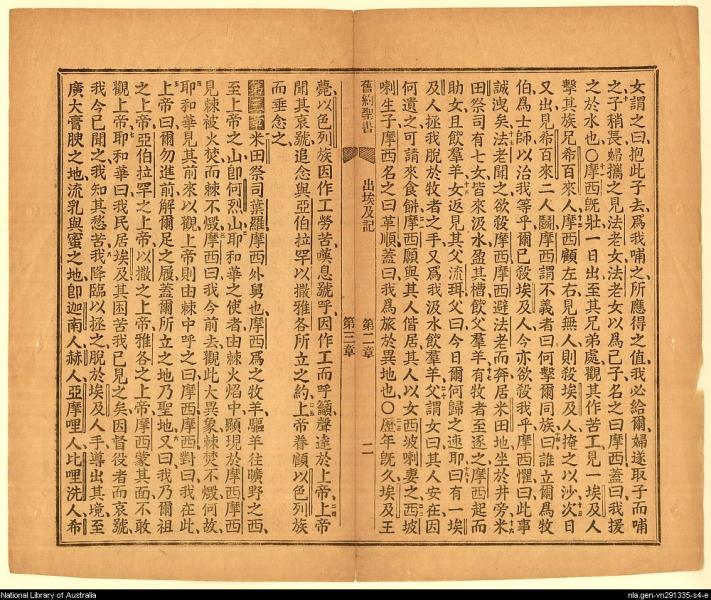 女謂之曰抱此子去爲我哺之所應得之值我必給爾婦遂取子而哺
之子稍長婦攜之見法老女法老女以爲己子名之曰摩西蓋曰我援
之於水也〇摩西旣壯一日出至其兄弟處觀其作苦工見一埃及人
擊其族兄希百來人摩西顧左右見無人則殺埃及人掩之以沙次日
又出見希百來二人鬬摩西謂不義者曰何擊爾同族曰誰立爾爲牧
伯爲士師以治我等乎爾已殺埃及人今亦欲殺我乎摩西懼曰此事
誠洩矣法老聞之欲殺摩西摩西避法老而奔居米田地坐於井旁米
田祭司有七女皆來汲水盈其槽飲父羣羊有牧者至逐之摩西起而
助女且飲羣羊女返見其父流珥父曰今日爾何歸之速耶曰有一埃
及人拯我脫於牧者之手又爲我汲水飲羣羊父謂女曰其人安在因
何遺之可請來食餅摩西願與其人偕居其人以女西坡喇妻之西坡
喇生子摩西名之曰革順蓋曰我爲旅於異地也〇歷年旣久埃及王
舊約聖書
出埃及記
第二章
第三章
二
薨以色列族因作工勞苦嘆息號呼因作工而呼籲聲達於上帝上帝
聞其哀號追念與亞伯拉罕以撒雅各所立之約上帝眷顧以色列族
而垂念之
第三章米田祭司葉羅摩西外舅也摩西爲之牧羊驅羊往曠野之西
至上帝之山卽何烈山耶和華之使者由棘火焰中顯現於摩西摩西
見棘被火焚而棘不燬摩西曰我今前去觀此大異象棘焚不燬何故
耶和華見其前來以觀上帝則由棘中呼之曰摩西摩西對曰我在此
上帝曰爾勿進前解爾足之履蓋爾所立之地乃聖地又曰我乃爾祖
之上帝亞伯拉罕之上帝以撒之上帝雅各之上帝摩西蒙其面不敢
觀上帝耶和華曰我民居埃及其困苦我已見之矣因督役者而哀號
我今已聞之我知其愁苦我降臨以拯之脫於埃及人手導出其境至
廣大膏腴之地流乳與蜜之地卽迦南人赫人亞摩哩人比哩洗人希
National Library of Australia
nla.gen-vn291335-s4-e